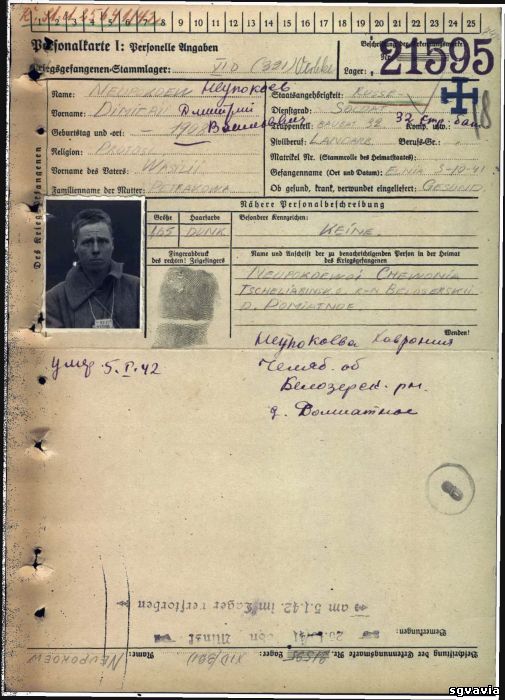 1 2 3 4 5 6 7 8 9 10 11 12 13 14 15 16 17 18 19 20 21 22 23 24 25
Personalkarte I: Personelle Angaben
Kriegsgefangenen-Stammlager: XI D (321)
Beschriftung der Erkennungsmarke
Nr. 21595
Lager:
Des Kriegsgefangenen
Name: NEUPOKOEW Неупокоев
Vorname: DIMITRIJ Дмитрий
Васильевич
Geburtstag und -ort: 1908
Religion:
Vorname des Vaters: WASILII
Familienname der Mutter: PETRAKOWA
Staatsangehörigkeit: RUSSE
Dienstgrad: SOLDAT
Truppenteil: BAUBA 32 Komp. usw.: 32 стр. бат.
Zivilberuf: LANDARB. Berufs-Gr.:
Matrikel Nr. (Stammrolle des Heimatstaates)
Gefangennahme (Ort und Datum): 3-10-41
Ob gesund, krank, verwundet eingeliefert: GESUND
Nähere Personalbeschreibung
Größe Haarfarbe Besondere Kennzeichen:
165 DUNK. KEINE.
Fingerabdruck
des rechten! Zeigefingers
Name und Anschrift der zu benachrichtigenden Person in der Heimat
des Kriegsgefangenen
NEUPOKOEWA
TSCHELIABINSK O. R-N BELOSERSKII
D. POMIATNOE
Wenden!
Неупокоева Хаврония
Челяб. об
Белозерск. рн.
умер 5.I.42
am 5.1.42. im Lager verstorben
Bemerkungen:
Beschriftung der Erkennungsmarke Nr. 21595 Lager: XI D (321) Name: NEUPOKOEW
sgvavia